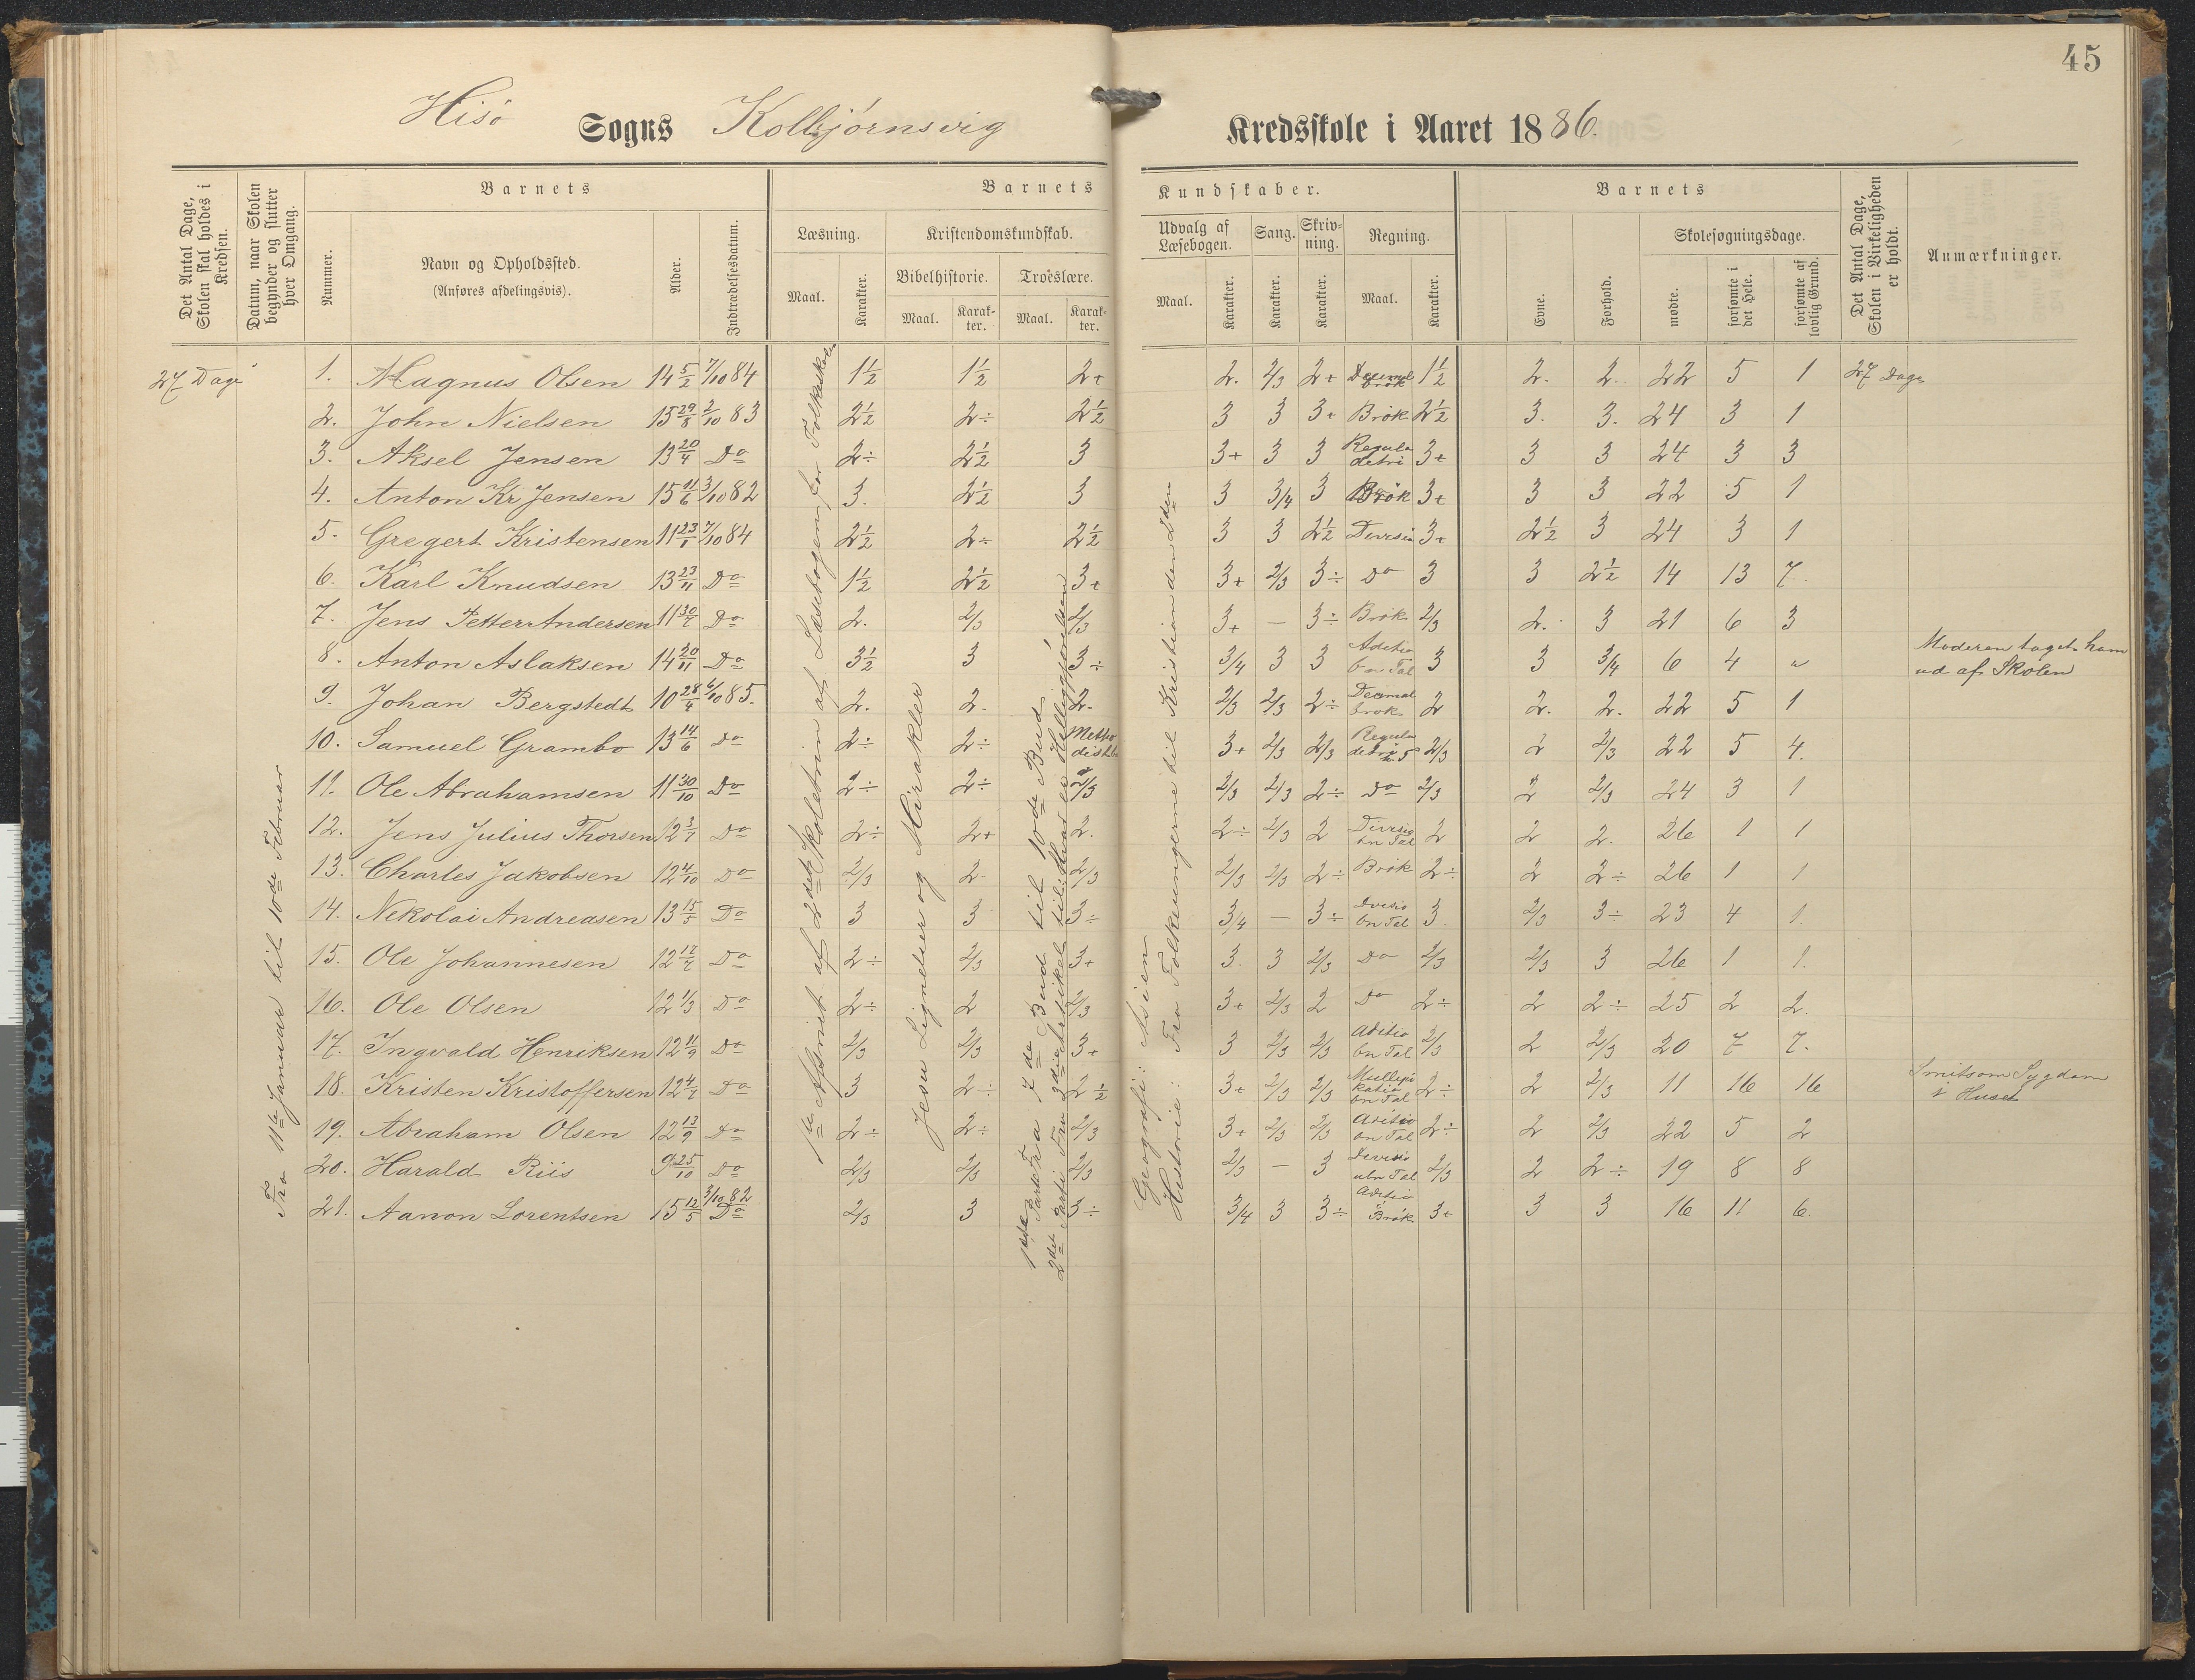 45
Hisö Sogns Kolbjörnsvig Kredsskole i Aaret 1886.
Det Antal Dage, Skolen skal holdes i Kredsen.
Datum, naar Skolen begynder og slutter hver Omgang.
Barnets
Nummer.
Navn og Opholdssted.
(Anføres afdelingsvis).
Alder.
Indtrædelsesdatum.
Barnets Kundskaber.
Læsning.
Maal.
Karakter.
Kristendomskundskab.
Bibelhistorie.
Maal.
Karakter.
Troeslære.
Maal.
Karakter.
Udvalg af Læsebogen.
Maal.
Karakter.
Sang.
Karakter.
Skrivning.
Karakter.
Regning.
Maal.
Karakter.
Barnets
Evne.
Forhold.
Skolesøgningsdage.
mødte.
forsømte i det Hele.
forsømte af lovlig Grund.
Det Antal Dage, Skolen i Virkeligheden er holdt.
Anmærkninger.
27 Dage
Fra 11te Januar til 10de Februar
1ste Afsnit af 2det Skoletrin af Læsebogen for Folkeskolen
Jesu Lignelser og Mirakler
1ste Parti Fra 7de Bud til 10de Bud
2det Parti Fra 2die Artikel til: Hvad er Helliggjörelsen
Geografi: Asien
Historie: Fra Folkungerne til Kristian den 2den
1. Magnus Olsen 14 5/2 7/10 84 1½ 1½ 2+ 2. 2/3 2+ Decimal brök 1½ 2. 2. 22 5 1 27 Dage
2. John Nielsen 15 29/8 2/10 83 2½ 2÷ 2½ 3 3 3+ Brök 2½ 3. 3. 24 3 1
3. Aksel Jensen 13 20/4 Do 2÷ 2½ 3 3+ 3 3 Regula detri 3+ 3 3 24 3 3
4. Anton Kr Jensen 15 11/6 3/10 82 3. 2½ 3 3 3/4 3 Brök 3+ 3 3 22 5 1
5. Gregert Kristensen 11 23/1 7/10 84 2½ 2÷ 2½ 3 3 2½ Divisio 3+ 2½ 3 24 3 1
6. Karl Knudsen 13 23/11 Do 1½ 2½ 3+ 3+ 2/3 3÷ Do 3 3 2½ 14 13 7.
7. Jens Petter Andersen 11 30/7 Do 2. 2/3 2/3 3+ — 3÷ Brök 2/3 2. 3 21 6 3
8. Anton Aslaksen 14 20/11 Do 3½ 3 3÷ 3/4 3 3 Aditio bn Tal 3 3 3/4 6 4 " Moderen taget ham ud af Skolen
9. Johan Bergstedt 10 28/4 6/10 85. 2. 2. 2. 2/3 2/3 2÷ Decimal brök 2 2. 2. 22 5 1
10. Samuel Grambo 13 14/6 Do 2÷ 2÷ Methodist 3+ 2/3 2/3 Regula detri 2/3 2 2/3 22 5 4.
11. Ole Abrahamsen 11 30/10 Do 2÷ 2÷ 2/3 2/3 2/3 2÷ Do 2/3 2 2/3 24 3 1
12. Jens Julius Thorsen 12 3/7 Do 2÷ 2+ 2. 2÷ 2/3 2 Divisio bn Tal 2 2 2. 26 1 1
13. Charles Jakobsen 12 4/10 Do 2/3 2- 2/3 2/3 2/3 2÷ Brök 2÷ 2 2÷ 26 1 1
14. Nikolai Andreasen 13 15/5 Do 3 3 3÷ 3/4 — 3÷ Dvisio bn Tal 3. 2/3 3÷ 23 4 1.
15. Ole Johannesen 12 17/7 Do 2÷ 2/3 3+ 3. 3 2/3 Do 2/3 2/3 3 26 1 1.
16. Ole Olsen 12 1/3 Do 2÷ 2 2/3 3+ 2/3 2 Do 2÷ 2 2÷ 25 2 2.
17. Ingvald Henriksen 12 11/9 Do 2/3 2/3 3+ 3 2/3 2/3 Aditio bn Tal 2/3 2 2/3 20 7 7.
18. Kristen Kristoffersen 12 4/7 Do 3 2÷ 2½ 3+ 2/3 2/3 Multipli katio bn Tal 2÷ 2 2/3 11 16 16 Smitsom Sygdom i Huset
19. Abraham Olsen 12 13/9 Do 2÷ 2÷ 2/3 3+ 2/3 2/3 Aditio bn Tal 2÷ 2 2/3 22 5 2
20. Harald Riis 9 25/10 Do 2/3 2/3 2/3 2/3 — 3 Divisio ubn Tal 2/3 2 2÷ 19 8 8
21. Aanon Lorentsen 15 12/5 3/10 82 Do 2/3 3 3÷ 3/4 3 3÷ Aditio Brök 3+ 3 3 16 11 6.